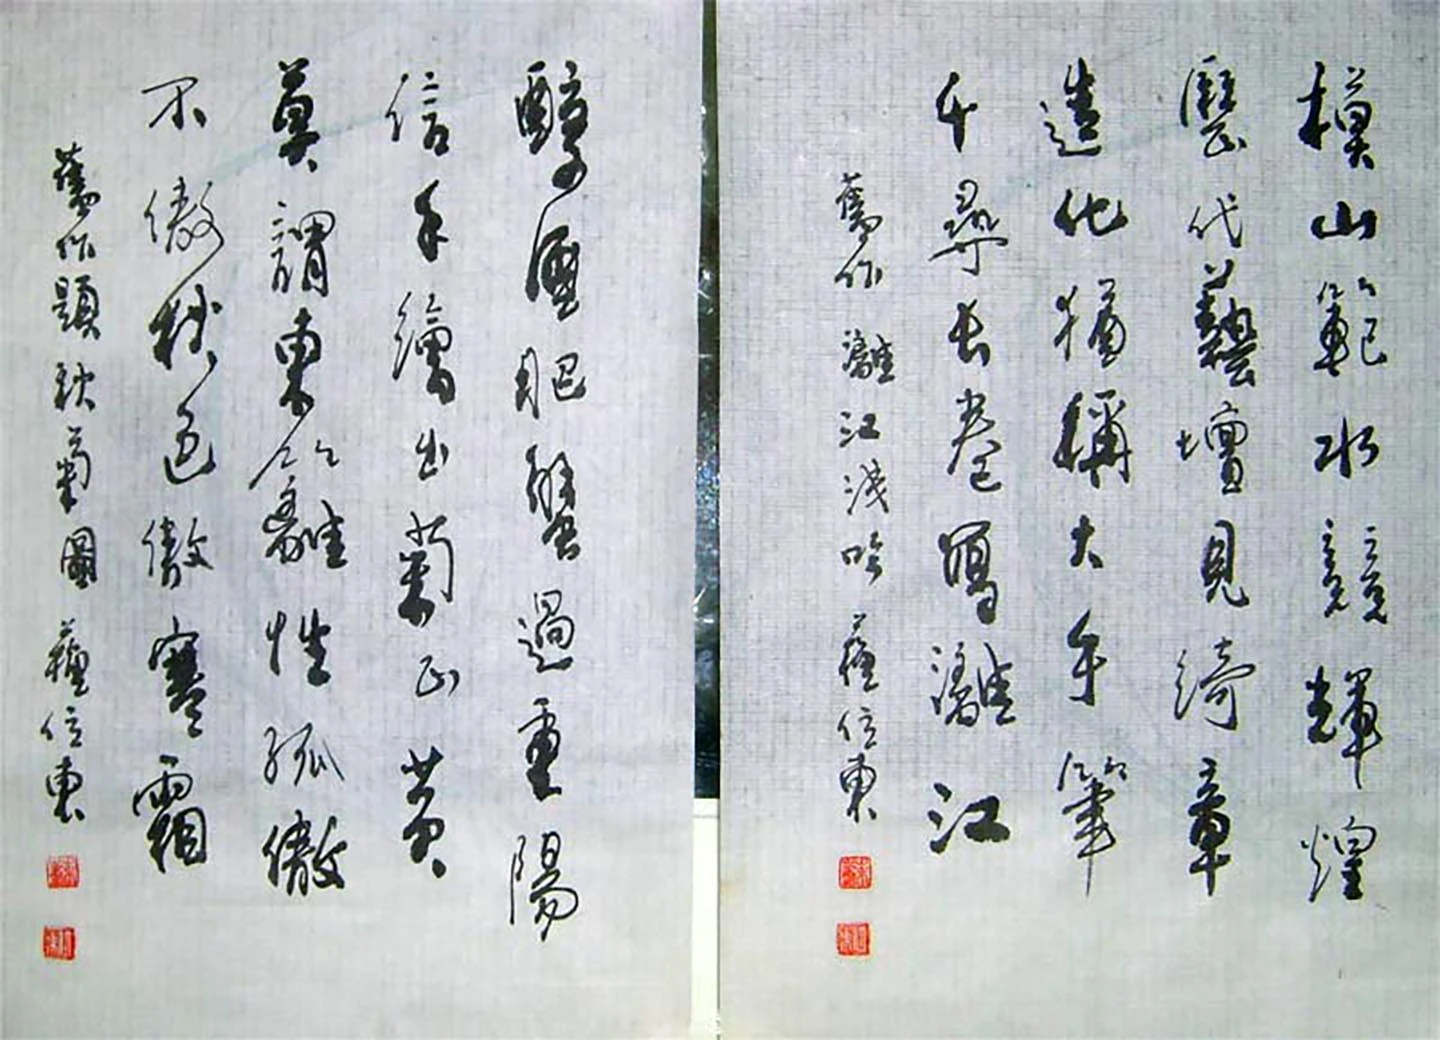 模山範水競輝煌
歷代藝壇見綺章
造化猶稱大手筆
千尋長卷寫灕江
舊作 灕江淺吟 蘇位東
醇酒肥蟹過重陽
信手繪出菊正黃
莫謂東籬性孤傲
不傲秋色傲寒霜
舊作題秋菊圖 蘇位東